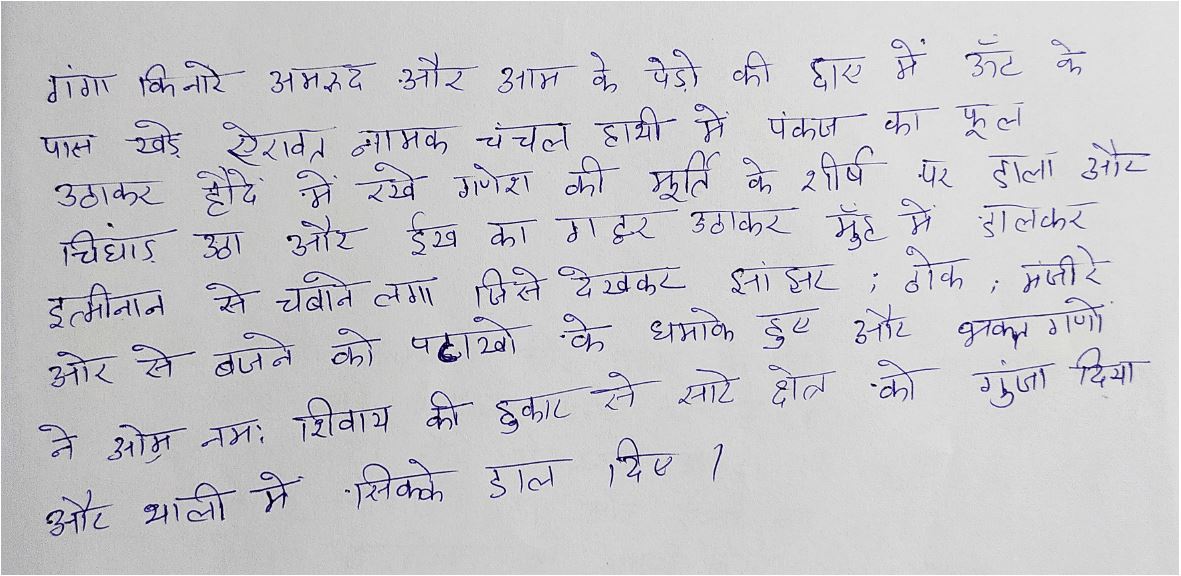 गंगा किनारे अमरुद और आम के पेड़ो की छाए में ऊँट के
पास खड़े ऐरावत नामक चंचल हाथी में पंकज का फूल
उठाकर हौदें में रखे गणेश की मूर्ति के शीर्ष पर डाला और
चिघांड़ उठा और ईख का गट्ठर उठाकर मुँह में डालकर
इत्मीनान से चबाने लगा जिसे देखकर झांझर ; ढोक ; मंजीरे
ओर से बजने को पटाखो के धमाके हुए और भक्त गणों
ने ओम नमः शिवाय की हुकार से सारे क्षेत्र को गुंजा दिया
और थाली में सिक्के डाल दिए ।